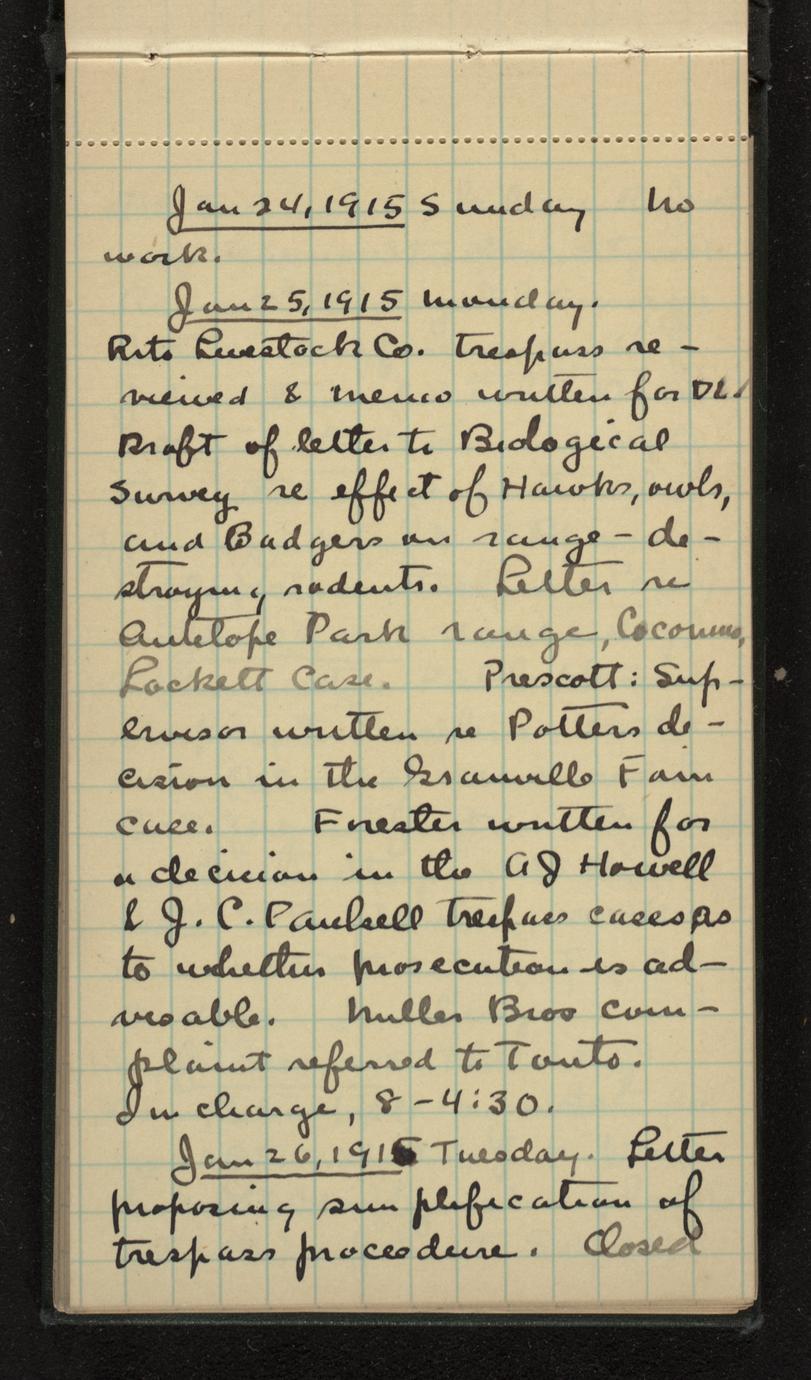 Jan 24, 1915 Sunday No
work.
Jan 25, 1915 Monday.
Rito Livestock Co. trespass re-
viewed & memo written for
Draft of letter to Biological
Survey re effect of Hawks, owls,
and Badgers on range-de-
stroying rodents. Letter re
Antelope Park range, Coconino,
Lockett Case. Prescott: Sup-
ervisor written re Potters de-
cision in the Granville Fain
case. Forester written for
a decision in the AJ Howell
& J. C. Paulsell trespass cases as
to whether prosecution is ad-
visable. Miller Bros com-
plaint referred to Tonto.
In charge, 8-4:30.
Jan 26, 1915 Tuesday. Letter
proposing simplification of
trespass procedure. Closed